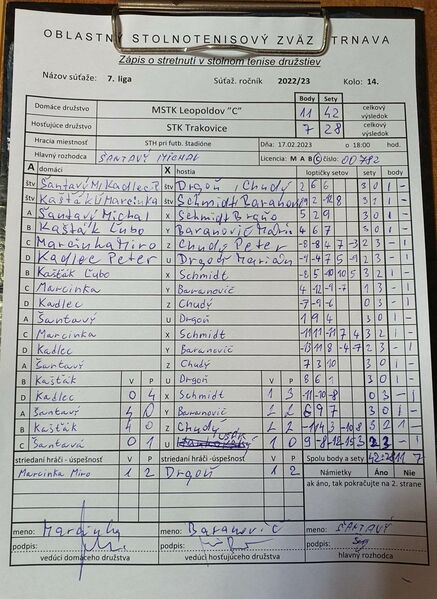 OBLASTNÝ STOLNOTENISOVÝ ZVÄZ TRNAVA
Zápis o stretnutí v stolnom tenise družstiev
Názov súťaže: 7. liga Súťaž. ročník 2022/23 Kolo: 14.
Body Sety
Domáce družstvo MSTK Leopoldov "C" 11 42 celkový výsledok
Hosťujúce družstvo STK Trakovice 7 28 celkový výsledok
Hracia miestnosť STH pri futb. štadióne Dňa: 17.02.2023 o 18:00 hod.
Hlavný rozhodca ŠANTAVÝ MICHAL Licencia: M A B C číslo: 00782
A domáci X hostia loptičky setov sety body
štv Šantavý M/Kadlec P štv Drgoň, Chudý 2 6 6 3 0 1 -
štv Kašťák Ľ/Marcinka štv Schmidt/Baranovič 3 1 1 -
A Šantavý Michal X Schmidt 5 2 9 3 0 1 -
B Kašťák Ľubo Y Baranovič 4 6 7 3 0 1 -
C Marcinka Miro Z Chudý Peter -8 -8 4 7 -3 2 3 - 1
D Kadlec Peter U Drgoň Marián 2 3 - 1
B Kašťák Ľubo X Schmidt 3 2 1 -
C Marcinka Y Baranovič 4 -12 -9 -7 1 3 - 1
D Kadlec Z Chudý -7 -9 -6 0 3 - 1
A Šantavý U Drgoň 1 9 4 3 0 1 -
C Marcinka X Schmidt -11 11 -11 7 4 3 2 1 -
D Kadlec Y Baranovič 2 3 - 1
A Šantavý Z Chudý 7 3 10 3 0 1 -
B Kašťák V P U Drgoň V P 8 6 1 3 0 1 -
D Kadlec 0 4 X Schmidt 1 3 -11 -10 -8 0 3 - 1
A Šantavý 4 0 Y Baranovič 6 9 7 3 0 1 -
B Kašťák 4 0 Z Chudý 3 2 1 -
C Šantavá 0 1 U 1 0 2 3
striedaní hráči - úspešnosť striedaní hráči - úspešnosť Spolu body a sety 42:28 11 7
Marcinka Miro 1 2 Drgoň 1 2 Námietky Áno Nie
ak áno, tak pokračujte na 2. strane
meno: Marcinka meno: Baranovič meno: ŠANTAVÝ
podpis: podpis: podpis:
vedúci domáceho družstva vedúci hosťujúceho družstva hlavný rozhodca